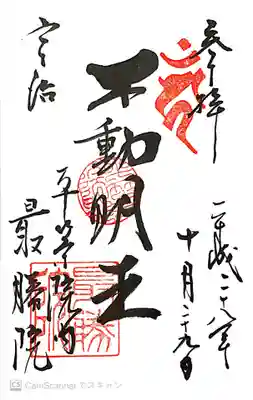 奉拝
平成二十八年
十月二十九日
不動明王
宇治
平等院内
最勝院
CamScanner でスキャン